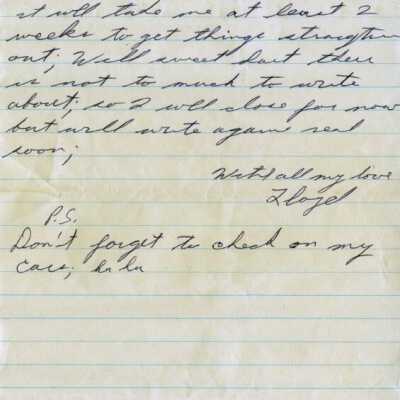 it will take me at least 2
weeks to get things straighten
out; Well sweet hart there
is not to much to write
about; so I will close for now
but will write again real
soon;
With all my love
Lloyd
P.S.
Don't forget to check on my
cars; ha ha